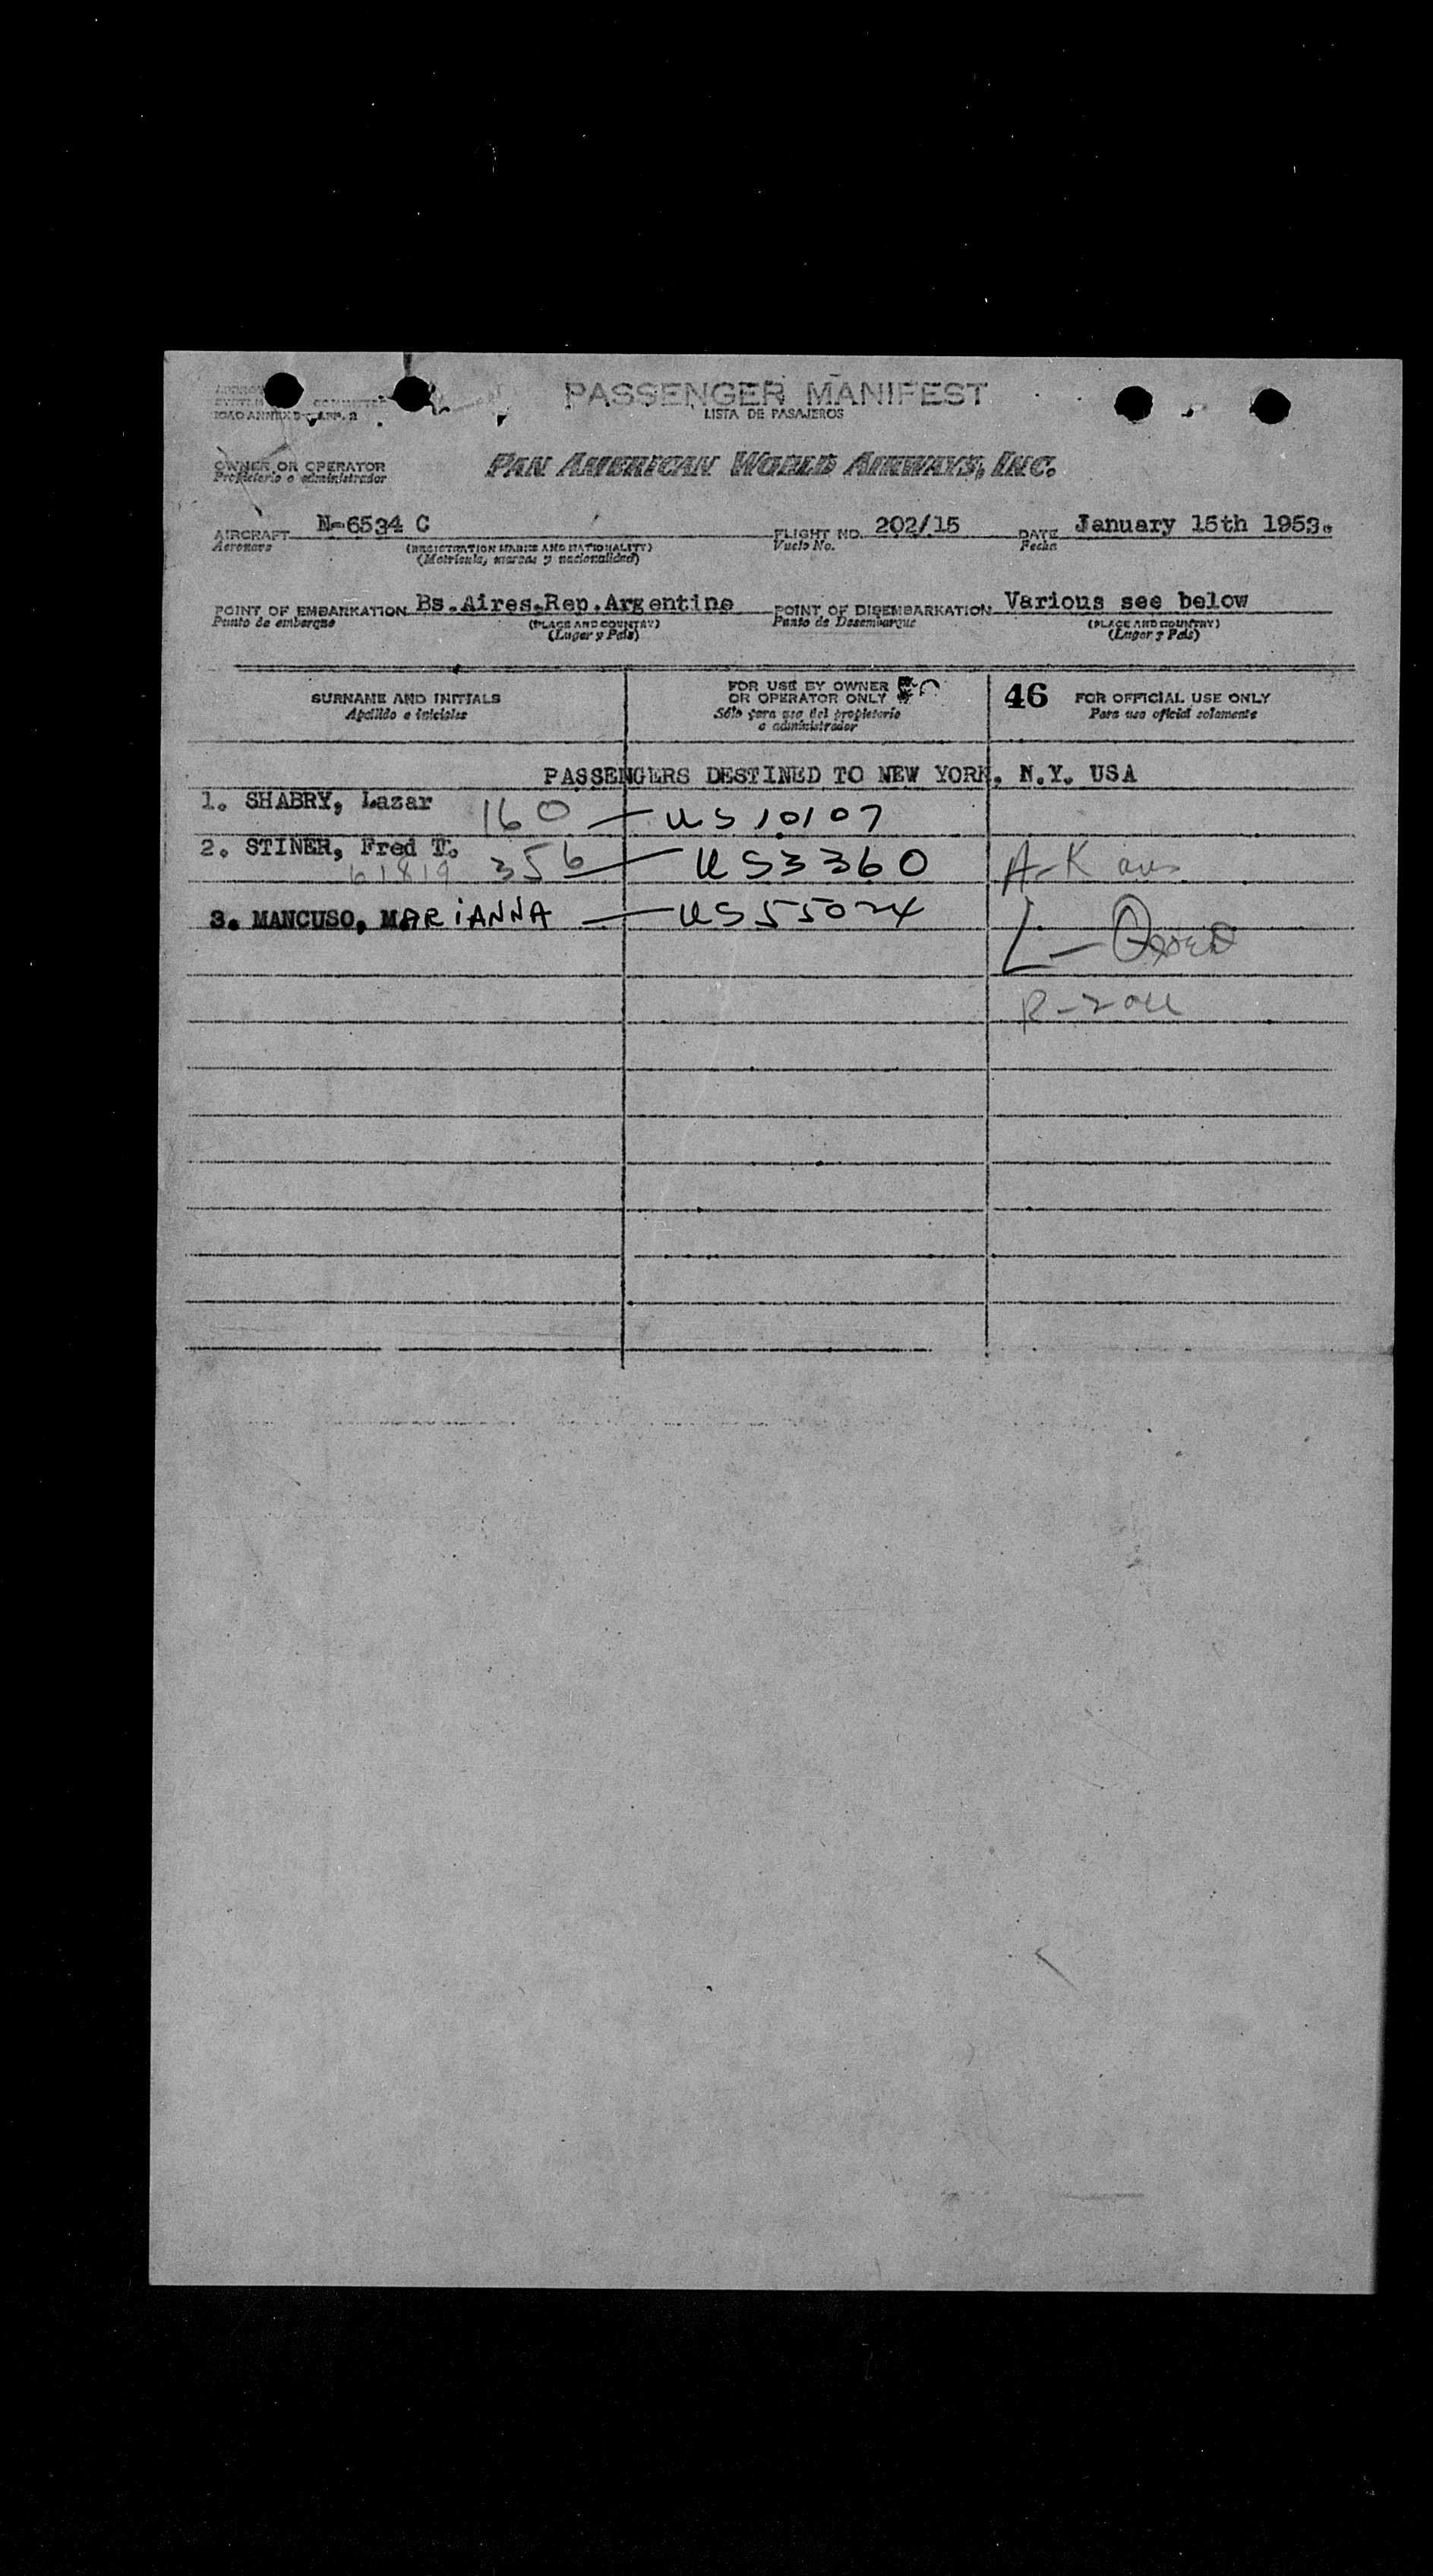 PASSENGER MANIFEST
LISTA DE PASAJEROS
ICAO ANNEX 9-APP. 2
OWNER OR OPERATOR
Propietario o administrador
PAN AMERICAN WORLD AIRWAYS, INC.
AIRCRAFT N-6534 C FLIGHT NO. 202/15 DATE January 15th 1953.
Aeronave (REGISTRATION MARKS AND NATIONALITY) Vuelo No. Fecha
(Matrícula, marcas y nacionalidad)
POINT OF EMBARKATION Bs.Aires.Rep.Argentine POINT OF DISEMBARKATION Various see below
Punto de embarque (PLACE AND COUNTRY) Punto de Desembarque (PLACE AND COUNTRY)
(Lugar y País) (Lugar y País)
SURNAME AND INITIALS
Apellido e iniciales
FOR USE BY OWNER
OR OPERATOR ONLY
Sólo para uso del propietario
o administrador
46 FOR OFFICIAL USE ONLY
Para uso oficial solamente
PASSENGERS DESTINED TO NEW YORK, N.Y. USA
1. SHABRY, Lazar 160 — US 10107
2. STINER, Fred T. 356 — US3360
61819
3. MANCUSO, MARiANNA — US 55024